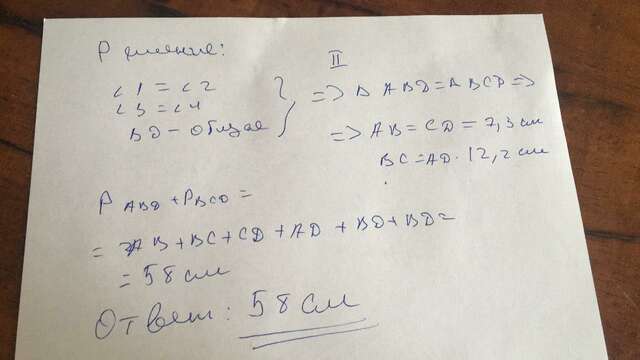 Решение:
∠1 = ∠2
∠3 = ∠4
BD - общая
II
=> Δ ABD = Δ BCD =>
=> AB = CD = 7,3 см
BC = AD · 12,2 см
P ABD + P BCD =
= AB + BC + CD + AD + BD + BD =
= 58 см
Ответ: 58 см